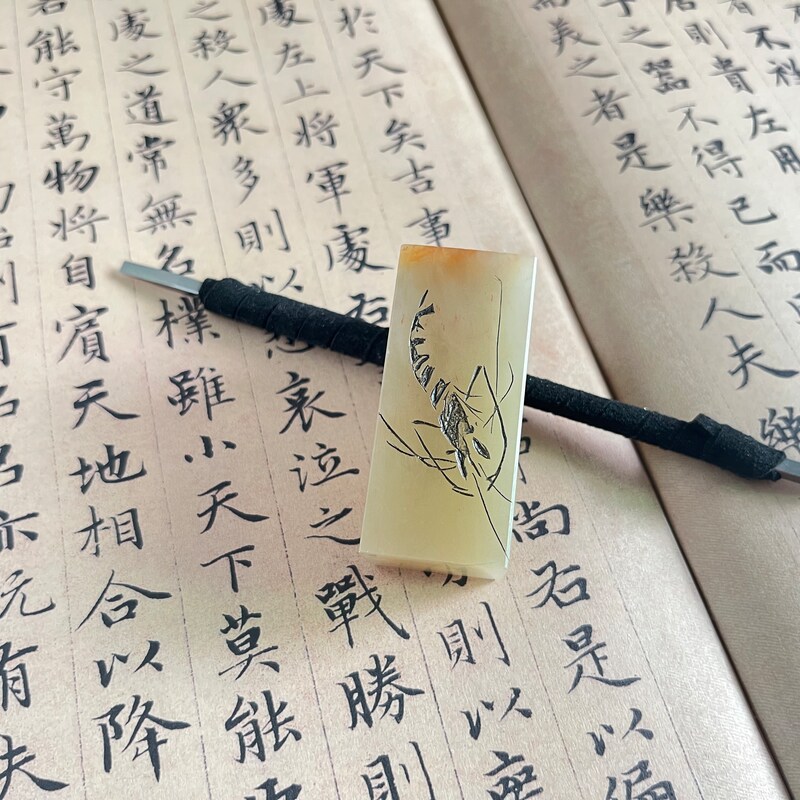 者不祥
居則貴左用
子之器不得已而
而美之者是樂殺人夫樂
於天下矣吉事尚右是以偏
處左上將軍處右則以
之殺人眾多則以悲哀泣之戰勝則
處之道常無名樸雖小天下莫能
若能守萬物將自賓天地相合以降
則有名名亦
有夫